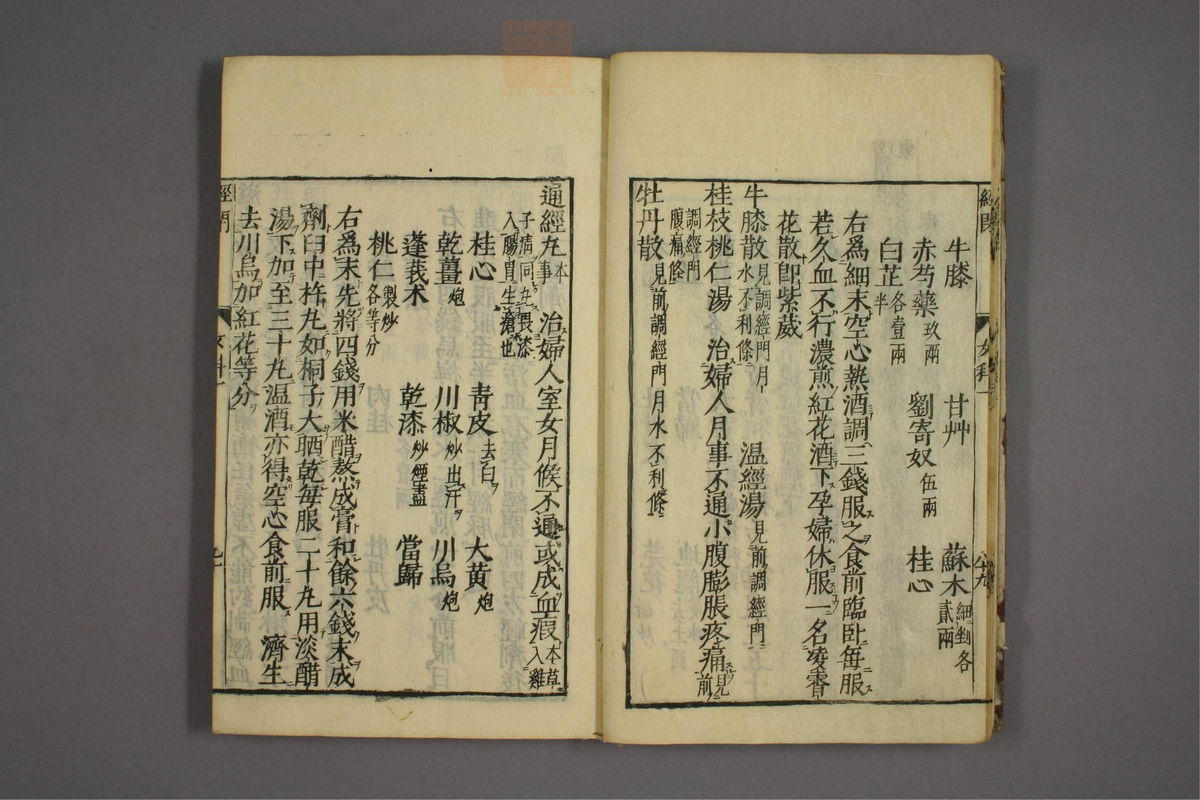 牛膝 甘艸 蘇木細剉各貳兩
赤芍藥玖兩 劉寄奴伍兩 桂心
白芷各壹兩半
右爲細末空心熱酒調三錢服之食前臨臥每服
若久血不行濃煎紅花酒下孕婦休服一名凌霄
花散卽紫葳
牛膝散見調經門月水不利條 温經湯見前調經門
桂枝桃仁湯 治婦人月事不通小腹膨脹疼痛見前調經門腹痛條
牡丹散見前調經門月水不利條
通經丸本事 治婦人室女月候不通或成血瘕本草入雞
子清同丸畏漆入腸胃生瘡也
桂心 靑皮去白 大黃炮
乾薑炮 川椒炒出汗 川烏炮
蓬莪朮 乾漆炒煙盡 當歸
桃仁製炒各等分
右爲末先將四錢用米醋熬成膏和餘六錢末成
劑臼中杵丸如桐子大晒乾每服二十丸用淡醋
湯下加至三十丸温酒亦得空心食前服 濟生
去川烏加紅花等分
經閉
女科一